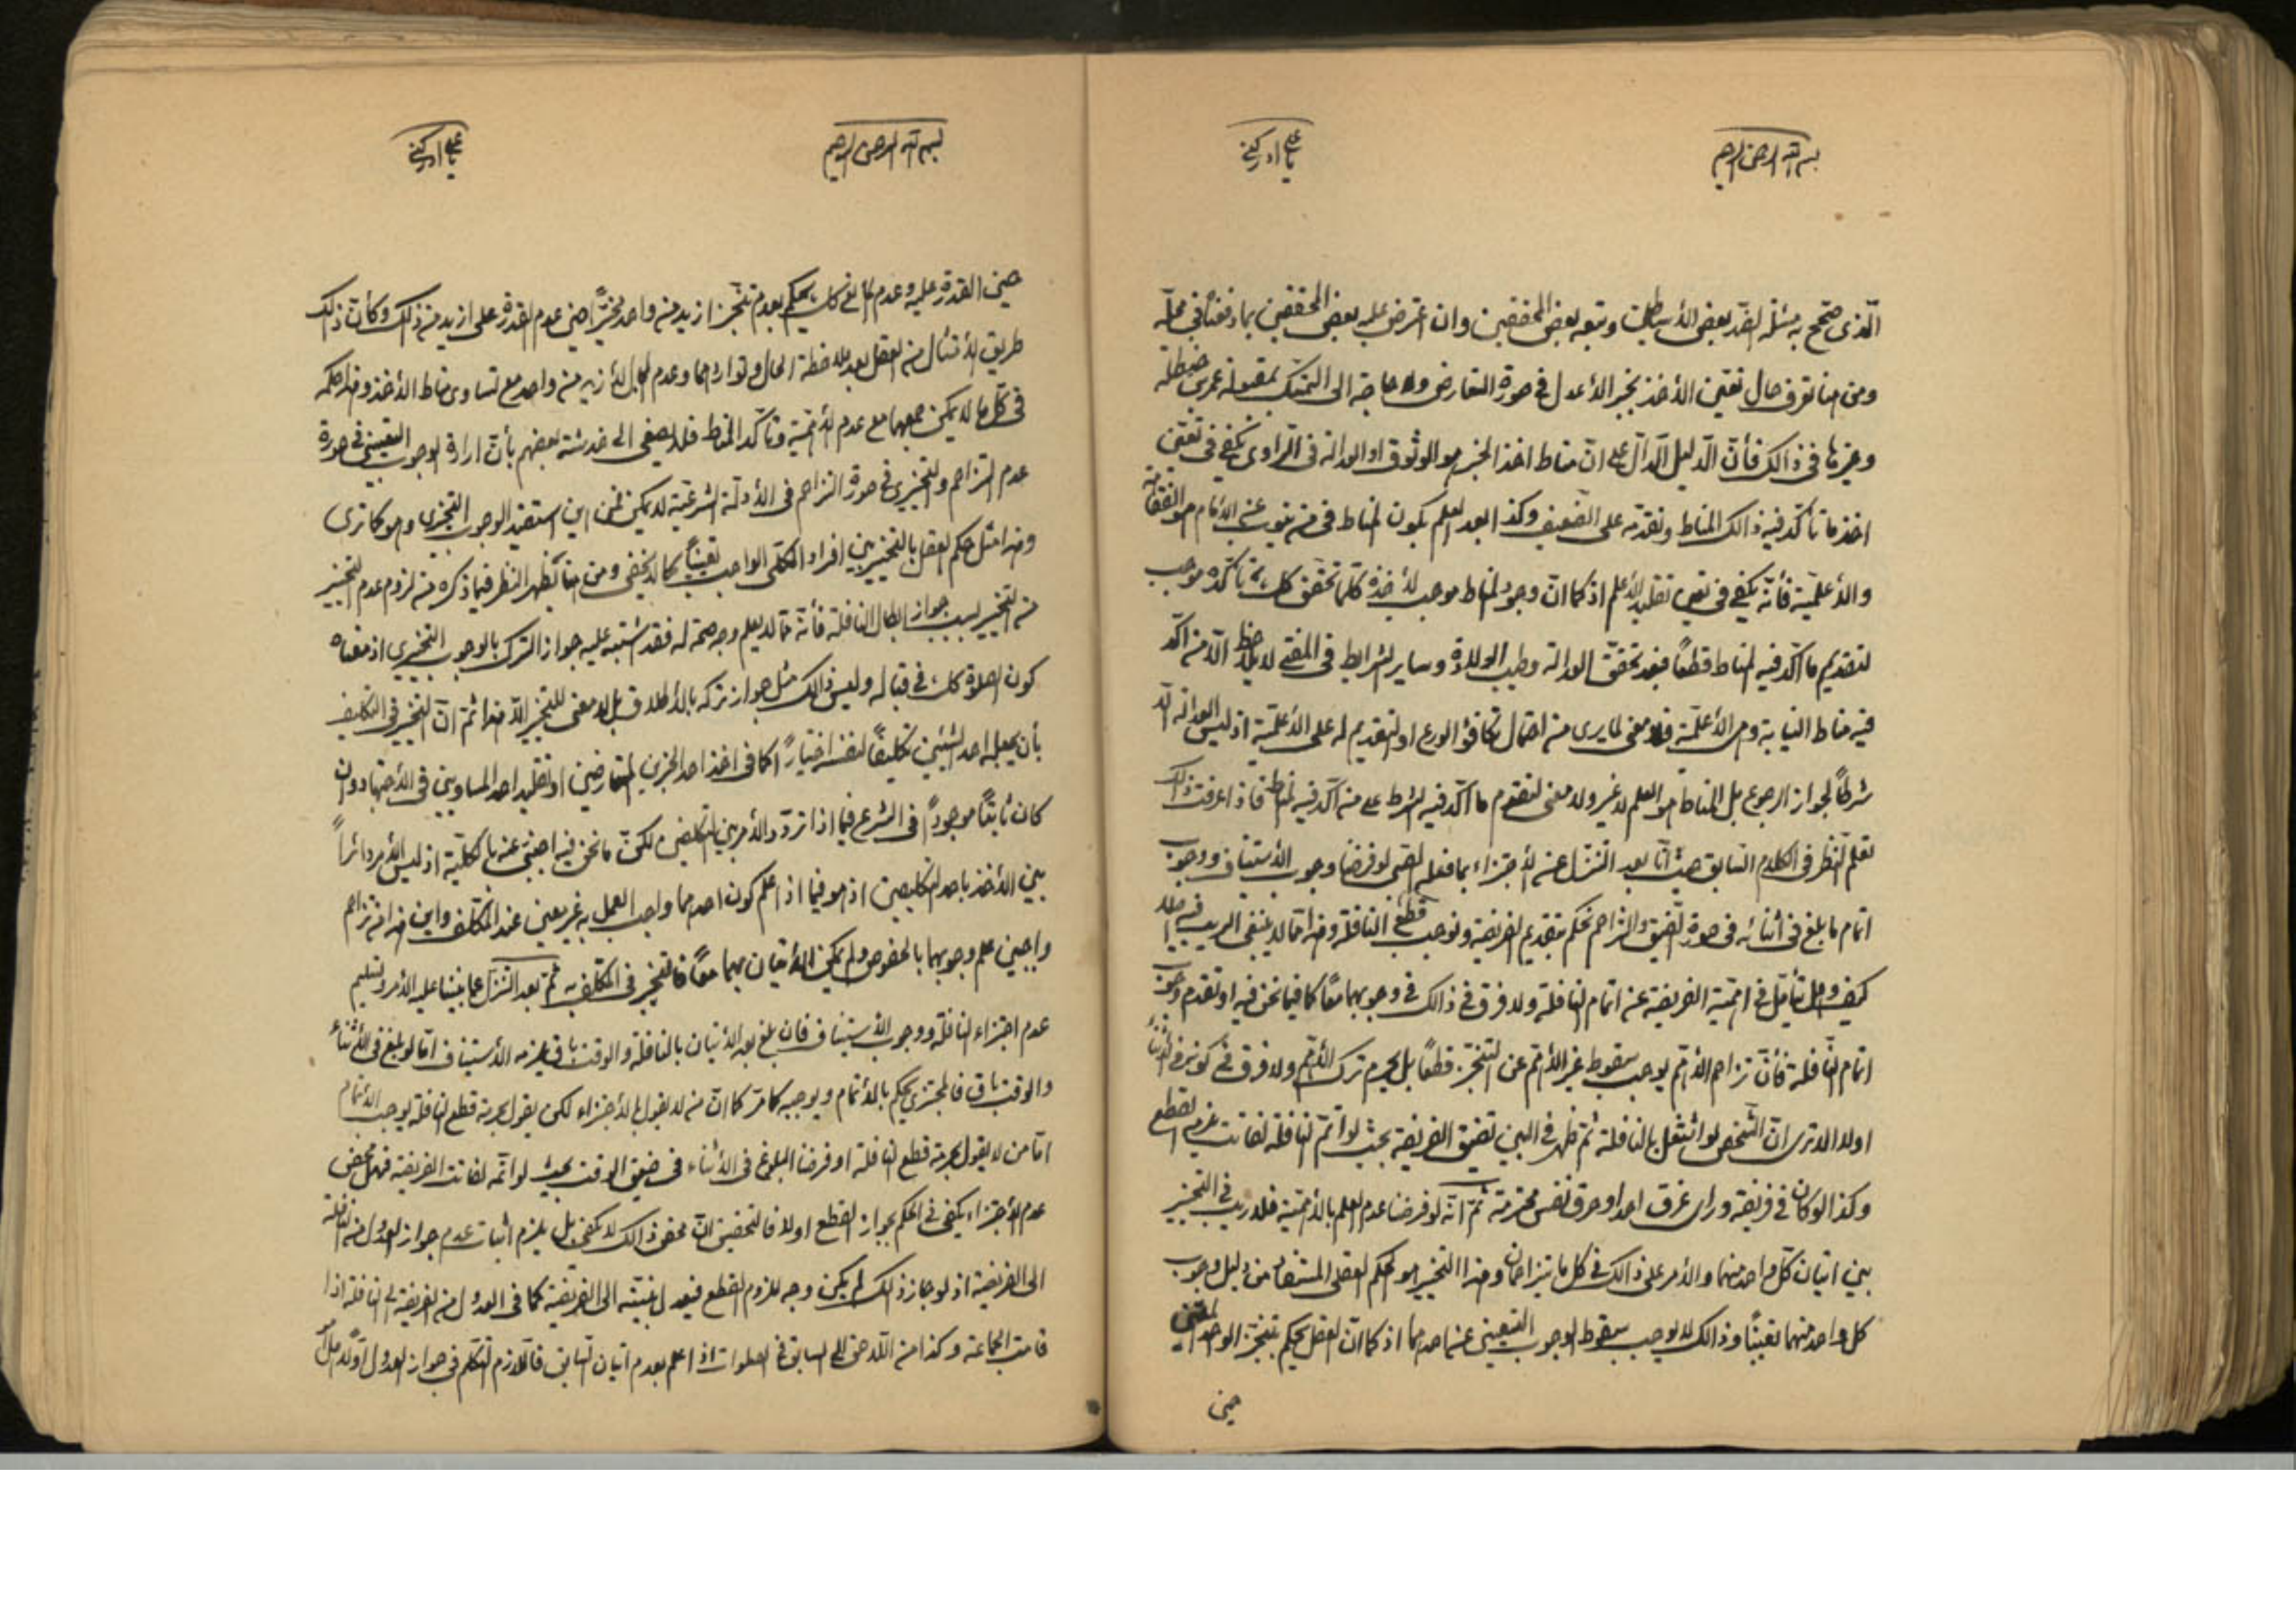 بسم الله الرحمن الرحيم
يا علي ادركني
الّذى صحّح به مسئلة الضدّ بعض الأساطين وتبعه بعض المحققين وان اعترض عليه بعض المحققين بما دفعناه فى محلّه
ومن هنا تعرف حال تعيّن الأخذ بخبر الأعدل فى صورة التعارض ولا حاجة الى التمسّك بمقبولة عمرى حنظلة
وغيرها فى ذالك فأنّ الدّليل الدّال على انّ مناط اخذ الخبر هو الوثوق او العدالة فى الرّاوى يكفى فى تعيّن
اخذ ما تأكّد فيه ذالك المناط وتقدّمه على الضعيف وكذا بعد العلم بكون المناط فى من ينوب عن الأمام هو الفقاهة
والأعلميّة فأنّه يكفى فى تعيين تقليد الأعلم اذ كما انّ وجود المناط موجب لأخذه كلّما تحقّق كك تأكّده موجب
لتقديم ما اكّد فيه المناط قطعًا فبعد تحقّق العدالة وطيب الولادة وساير الشرايط فى المفتى لا يلاحظ الّا من اكّد
فيه مناط النيابة وهى الأعلميّة فلا معنى لما يرى من احتمال تكافؤ الورع او لتقديم له على الأعلميّة اذ ليس العدالة الّا
شرطًا لجواز الرجوع بل المناط هو العلم لا غير ولا معنى لتقدّم ما اكّد فيه الشرط على من اكّد فيه المناط فاذا عرفت ذالك
تعلم النّظر فى الكلام السّابق حيث انّا بعد التنزّل عن الأجتزاء بما فعله الصبى لو فرضنا وجوب الأستيناف ووجوب
اتمام ما بلغ فى اثنائه فى صورة الضّيق والتزاحم نحكم بتقديم الفريضة ونوجب قطع النافلة وهذا ممّا لا ينبغى الريب فيه
كيف وهل تتأمّل فى اهميّة الفريضة عن اتمام النافلة ولا فرق فى ذالك فى وجوبهما معًا كما فيما نحن فيه او تقدم وجوب
اتمام النّافلة فأنّ تزاحم الأهمّ يوجب سقوط غير الأهمّ عن التنجّز قطعًا بل يحرم ترك الأهمّ ولا فرق فى كونه فى الأثناء
اولا الا ترى انّ الشّخص لو اشتغل بالنافلة ثمّ ظهر فى البين تضيّق الفريضة بحيث لو اتمّ النافلة لفاتت يلزم القطع
وكذا لو كان فى فريضة وراى غرق احد او حرق نفس محترمة ثمّ انّه لو فرضنا عدم العلم بالأهميّة فلا ريب فى التخيير
بين اتيان كلّ واحد منهما والأمر على ذالك فى كل ما يتزاحمان وهذا التخيير هو الحكم العقلى المستفاد من دليل وجوب
كل واحد منهما تعيّنًا وذالك لا يوجب سقوط الوجوب التعيينى عن احدهما اذ كما انّ العقل يحكم بتنجّز الواحد المعيّن
حين
بسم الله الرحمن الرحيم
يا علي ادركني
حين القدرة عليه وعدم المانع كك يحكم بعدم تنجّز ازيد من واحد مخيّرًا حين عدم القدرة على ازيد من ذلك وكأنّ ذلك
طريق الأمتثال من العقل بعد ملاحظة الحال وتواردهما وعدم للأزيد من واحد مع تساوى مناط الأخذ وهذا حكمه
فى كلّ ما لا يمكن جمعهما مع عدم الأهميّة وتأكّد المناط فلا يصغى الى خدشة بعضهم بأنّ ارادة الوجوب التعيينى فى صورة
عدم التزاحم والتخييرى فى صورة التزاحم فى الأدلّة الشرعيّة لا يمكن فمن اين استفيد الوجوب التخييرى وهو كما ترى
وهذا مثل حكم العقل بالتخيير بين افراد الكلّى الواجب تعيينًا كما لا يخفى ومن هنا يظهر النظر فيما ذكره من لزوم عدم التخيير
من التخيير لسبب جواز ابطال النافلة فأنّه ممّا لا يعلم وجه صحة له فقد اشتبه عليه جواز الترك بالوجوب التخييرى اذ معناه
كون الصلوة كك فى قباله وليس ذالك مثل جواز تركه بالأطلاق بل لا معنى للتخيير الّا هذا ثمّ انّ التخيير فى التكليف
بأن يجعل احد الشيئين تكليفًا لنفسه اختيارًا كما فى اخذ احد الخبرين المتعارضين او تقليد احد المساويين فى الأجتهاد وان
كان ثابتًا موجودًا فى الشرع فيما اذا تردّد الأمر بين التكليفين لكنّ ما نحن فيه اجنبىّ عنه بالكليّة اذ ليس الأمر دائرًا
بين الأخذ باحد التكليفين اذ هو فيما اذا علم كون احدهما واجب العمل به غير معين عند المكلّف واين هذا من تزاحم
واجبين علم وجوبهما بالخصوص ولم يمكن الأتيان بهما معًا فالتخيير فى المكلّف به ثمّ بعد التنزّل عمّا بنينا عليه الأمر وتسليم
عدم اجتزاء النافلة ووجوب الأستيناف فان بلغ بعد الأتيان بالنافلة والوقت باق يلزمه الأستيناف امّا لو بلغ فى الأثناء
والوقت باق فالمجتزى يحكم بالأتمام ويوجبه كما مرّ كما انّ من لا يقول بالأجتزاء لكن يقول بحرمة قطع النافلة يوجب الأتمام
امّا من لا يقول بحرمة قطع النافلة او فرضنا البلوغ فى الأثناء فى ضيق الوقت بحيث لو اتمّه لفاتت الفريضة فهل محض
عدم الأجتزاء يكفى فى الحكم بجواز القطع اولا فالتحقيق انّ محض ذالك لا يكفى بل يلزم اثبات عدم جواز العدول من النافلة
الى الفريضة اذ لو جاز ذلك لم يكن وجه للزوم القطع فيعدل بنيّته الى الفريضة كما فى العدول من الفريضة الى النافلة اذا
قامت الجماعة وكذا من اللّاحق الى السابق فى الصلوات اذا علم بعدم اتيان السّابق فاللّازم التكلّم فى جواز العدول اوّلا